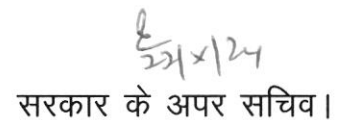 22/x/24
सरकार के अपर सचिव।